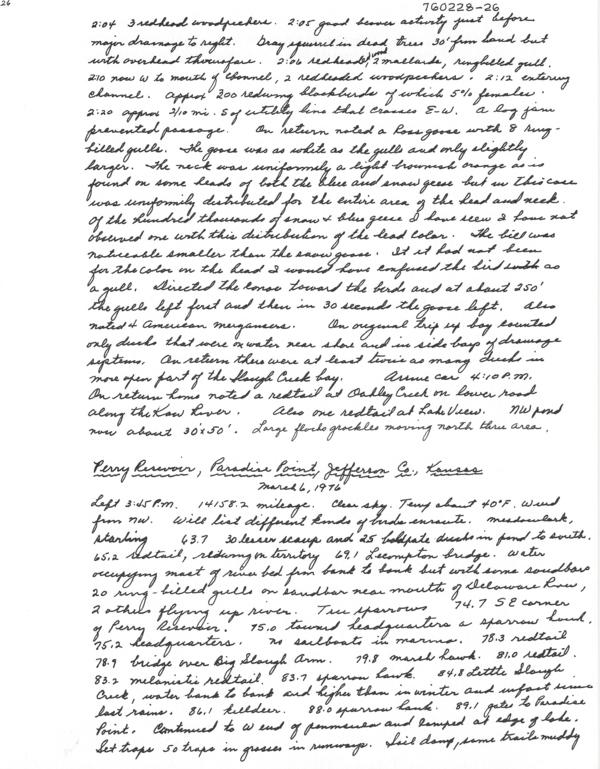 26
760228-26
2:04 3 redhead woodpeckers. 2:05 good beaver activity just before
major drainage to right. Gray squirrel in dead trees 30' from land but
with overhead thourofare. 2:06 redhead, 2 mallards, ringbilled gull.
2:10 now W to mouth of channel, 2 redheaded woodpeckers. 2:12 entering
channel. Approx 200 redwing blackbirds of which 5% females.
2:20 approx 2/10 mi. S of utility line that crosses E-W. A log jam
prevented passage. On return noted a Ross goose with 8 ring-
billed gulls. The goose was as white as the gulls and only slightly
larger. The neck was uniformily a light brownish orange as is
found on some heads of both the blue and snow geese but in this case
was uniformily distributed for the entire area of the head and neck.
Of the hundred thousands of snow & blue geese I have seen I have not
observed one with this distribution of the head color. The bill was
noticeable smaller than the snow goose. If it had not been
for the color on the head I would have confused the bird as
a gull. Directed the canoe toward the birds and at about 250'
the gulls left first and then in 30 seconds the goose left. Also
noted 4 American mergansers. On original trip up bay counted
only ducks that were on water near shore and in side bays of drainage
systems. On return there were at least twice as many ducks in
more open part of the Slough Creek bay. Arrive car 4:10 P.M.
On return home noted a redtail at Oakley Creek on lower road
along the Kaw River. Also one redtail at Lake View. NW pond
now about 30'x50'. Large flocks grackles moving north thru area.
Perry Resevoir, Paradise Point, Jefferson Co., Kansas
March 6, 1976
Left 3:45 P.M. 14158.2 mileage. Clear sky. Temp about 40°F. Wind
from NW. Will list different kinds of birds enroute. meadowlark,
starling 63.7 30 lesser scaup and 25 baldpate ducks in pond to south.
65.2 redtail, redwing on territory 69.1 Lecompton bridge. Water
occupying most of river bed from bank to bank but with some sandbars
20 ring-billed gulls on sandbar near mouth of Delaware River,
2 others flying up river. Tree sparrows 74.7 SE corner
of Perry Resevoir. 75.0 toward headquarters a sparrow hawk.
75.2 headquarters. no sailboats in marina. 78.3 redtail
78.9 bridge over Big Slough Arm. 79.8 marsh hawk. 81.0 redtail.
83.2 melanistic redtail. 83.7 sparrow hawk. 84.8 Little Slough
Creek, water bank to bank and higher than in winter and since
last rains. 86.1 killdeer. 88.0 sparrow hawk. 89.1 gate to Paradise
Point. Continued to W end of peninsula and camped at edge of lake.
Set traps 50 traps in grasses in runways. Soil damp, some trails muddy